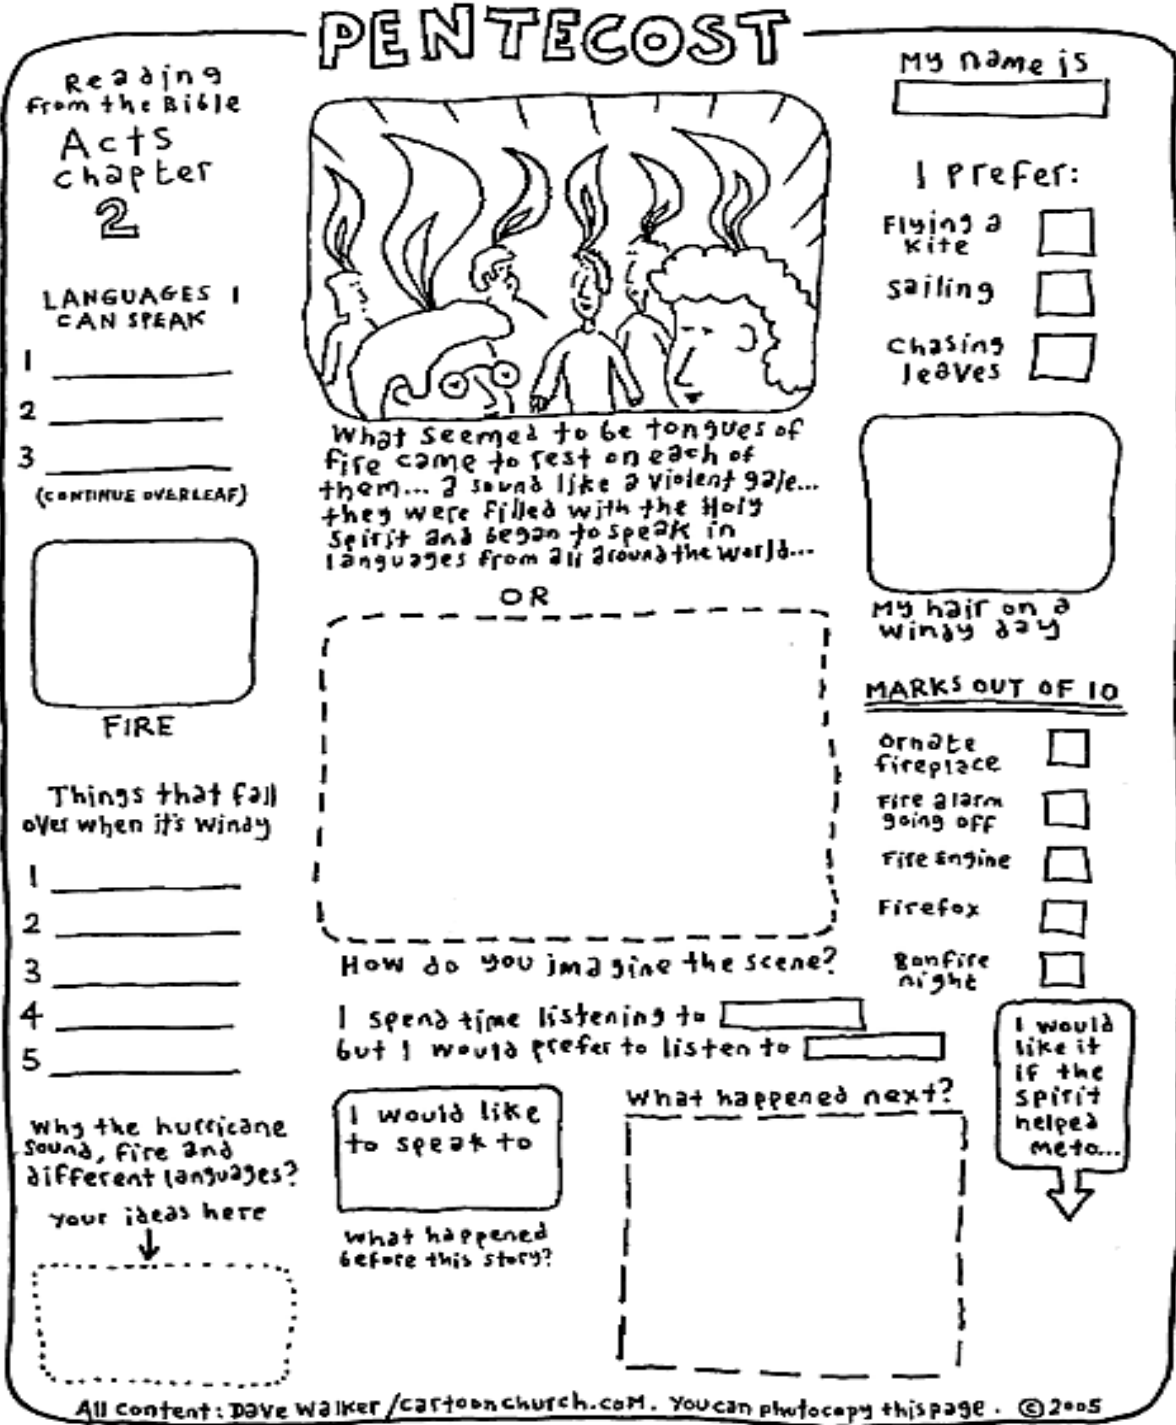 PENTECOST
Reading
from the Bible
Acts
chapter
2
LANGUAGES I
CAN SPEAK
1
2
3
(CONTINUE OVERLEAF)
FIRE
Things that fall
over when it's windy
1
2
3
4
5
Why the hurricane
sound, fire and
different languages?
Your ideas here
What seemed to be tongues of
fire came to rest on each of
them... a sound like a violent gale...
they were filled with the Holy
Spirit and began to speak in
languages from all around the world...
OR
How do you imagine the scene?
I spend time listening to
but I would prefer to listen to
I would like
to speak to
What happened
before this story?
What happened next?
My name is
I prefer:
Flying a
kite
Sailing
Chasing
leaves
My hair on a
windy day
MARKS OUT OF 10
Ornate
fireplace
Fire alarm
going off
Fire Engine
Firefox
Bonfire
night
I would
like it
if the
spirit
helped
me to...
All content: Dave Walker/cartoonchurch.com. You can photocopy this page. © 2005